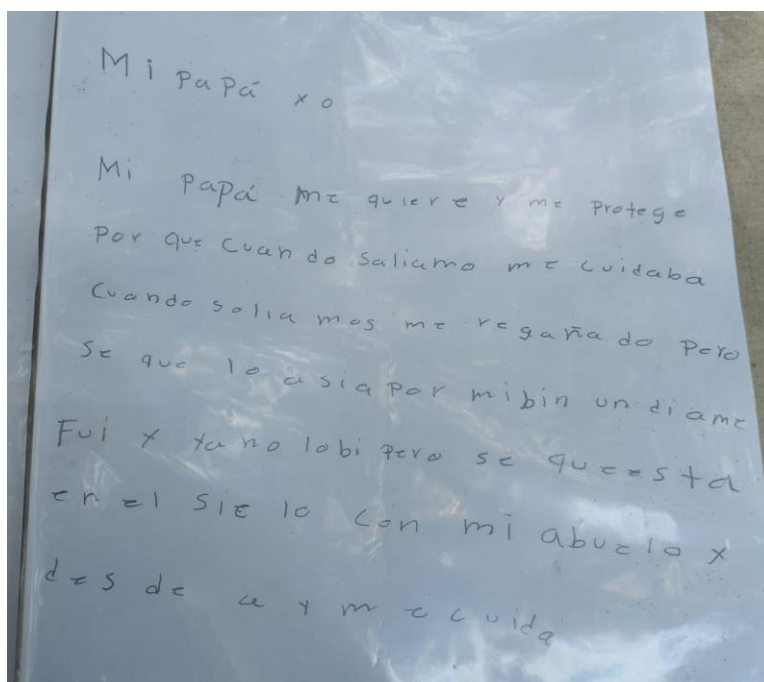 Mi papá x o
Mi papá me quiere y me protege
Por que cuando saliamo me cuidaba
Cuando solia mos me regaña do pero
se que lo asia por mi bin un dia me
Fui x ya no lo bi pero se que esta
en el sielo con mi abuelo x
des de a y me cuida